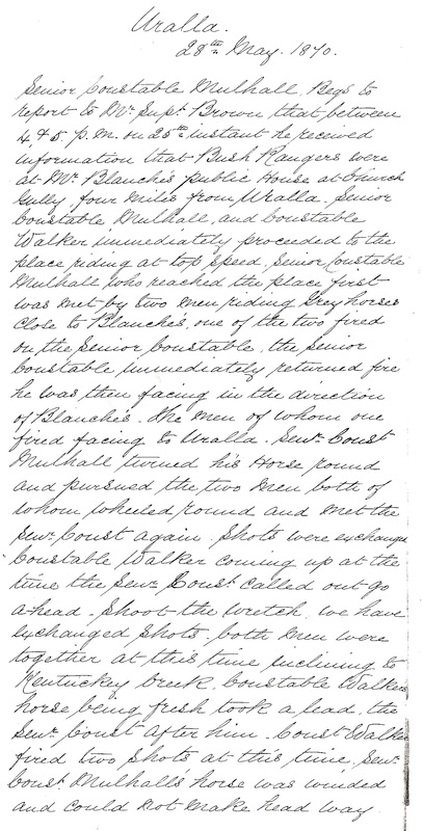 Uralla.
28th May. 1870.
Senior Constable Mulhall. Begs to
report to Mr. Supt. Brown that between
4 & 5 p.m. on 25th instant he received
information that Bush Rangers were
at Mr. Blanch's public House at Church
Gully, four miles from Uralla. Senior
Constable Mulhall, and Constable
Walker immediately proceeded to the
place riding at top speed, Senior Constable
Mulhall who reached the place first
was met by two men riding Grey horses
close to Blanche's, one of the two fired
on the Senior Constable, the senior
Constable immediately returned fire
he was then facing in the direction
of Blanche's. The men of whom one
fired facing to Uralla. Senr. Const
Mulhall turned his Horse round
and pursued the two men both of
whom wheeled round and met the
Senr. Const again. Shots were exchanged
Constable Walker coming up at the
time the Senr. Const. called out go
a-head. Shoot the wretch, we have
exchanged shots. both men were
together at this time inclining to
Kentuckey Creek. Constable Walkers
horse being fresh took a lead, the
Senr. Const after him. Const Walker
fired two shots at this time, Senr.
Const. Mulhall's horse was winded
and could not make head way.